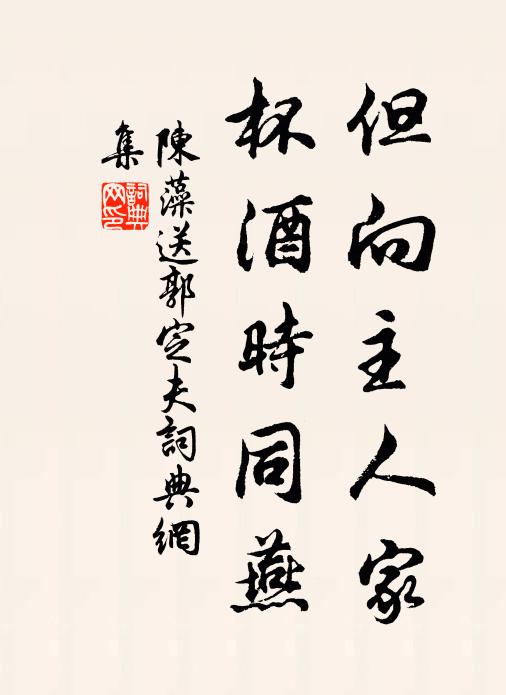 但向主人家
杯酒時同燕
陳藻送郭定夫詞典網
集
詞典
网印